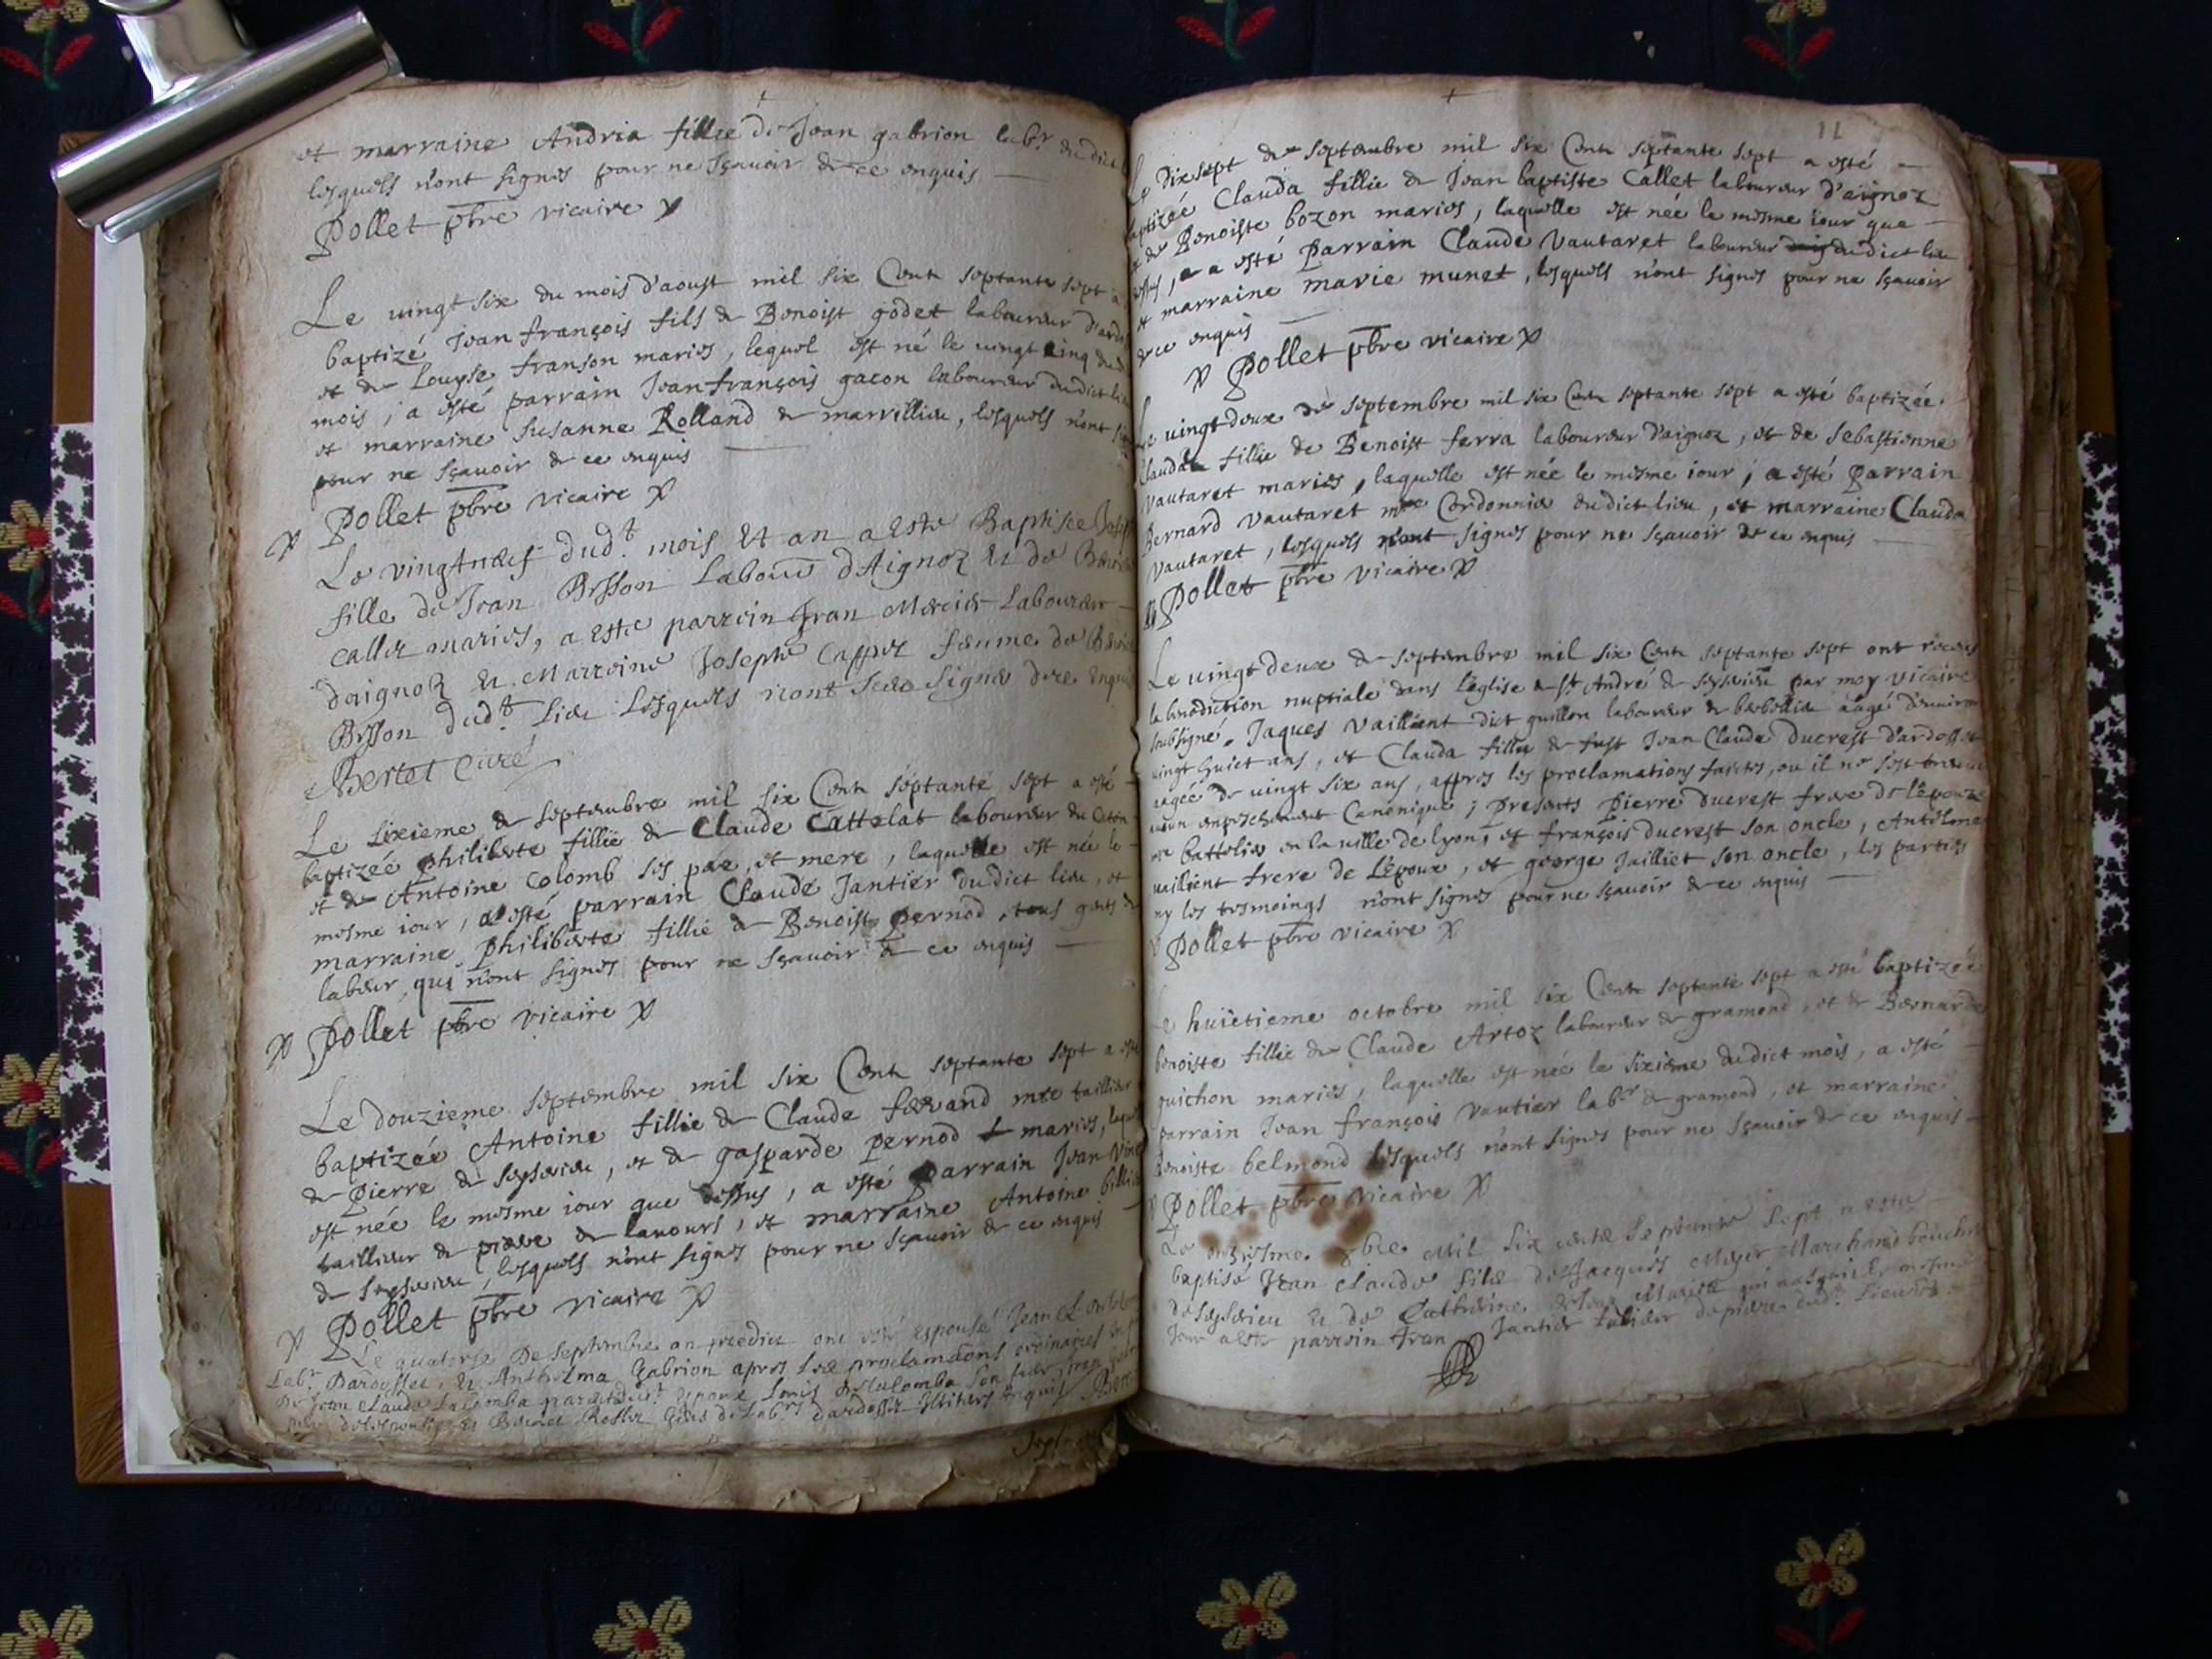 et marraine Andria fillie de Jean gabrion labr. du dict
lesquels n'ont signes pour ne sçavoir de ce enquis
Pollet pbre vicaire
Le vingt six du mois d'aoust mil six Cent septante sept a
baptizé Jean françois fils de Benoist godet laboureur
et de Louyse franson maries, lequel est né le vingt cinq dud
mois, a esté parrain Jean françois gacon laboureur dudict lieu
et marraine Susanne Rolland de marvillieu, lesquels n'ont
pour ne sçavoir de ce enquis
Pollet pbre vicaire
Le vingtneuf dudt. mois Et an a Este Baptisee
fille de Jean Bysson Labour dAignoz Et de
callet maries, a este parrein Jean Mercier Laboureur
daignoz Et Marreine Josephe Cappez femme de
Bysson dudt. Lieu Lesquels n'ont signe de ce
Bertet Curé
Le sixieme de septembre mil six Cent septante sept a esté
baptizée philiberte fillie de Claude Cattelat laboureur du
et de Antoine Colomb ses pere et mere, laquelle est née le
mesme iour, a esté parrain Claude Jantier dudict lieu, et
marraine philiberte fillie de Benoist pernod, tous gents de
labeur, qui n'ont signes pour ne sçavoir de ce enquis
Pollet pbre vicaire
Le douzieme septembre mil six Cent septante sept a esté
baptizée Antoine fillie de Claude ferrand mre taillieur
de pierre de seyssieu, et de gasparde pernod maries,
est née le mesme iour que dessus, a esté parrain Jean
taillieur de pierre de lavours, et marraine Antoine
de seyssieu, lesquels n'ont signes pour ne sçavoir de ce enquis
Pollet pbre vicaire
Le quatorse De Septembre an predict ont esté espousé Jean
Labr. Et Anthelma Gabrion apres les proclamations ordinaires
De Jean Claude Lacomba Espoux Louis
Et Rosset de Labrs enquis
11
Le dixsept de septembre mil six Cent septante sept a esté
baptizée Clauda fillie de Jean baptiste Callet laboureur d'aignoz
et de Benoiste bozon maries, laquelle est née le mesme iour que
dessus, a esté parrain Claude Vautaret laboureur dudict lieu
et marraine marie munet, lesquels n'ont signes pour ne sçavoir
de ce enquis
Pollet pbre vicaire
Le vingt deux de septembre mil six Cent septante sept a esté baptizée
Clauda fillie de Benoist ferra laboureur d'aignoz, et de Sebastienne
Vautaret maries, laquelle est née le mesme iour, a esté Parrain
Bernard Vautaret mre Cordonnier dudict lieu, et marraine Clauda
Vautaret, lesquels n'ont signes pour ne sçavoir de ce enquis
Pollet pbre vicaire
Le vingt deux de septembre mil six Cent septante sept ont receus
la benediction nuptiale dans l'eglise de st André de seyssieu par moy vicaire
soubsigné, Jaques Vaillient dict guillon laboureur de aagé d'environ
vingt huict ans, et Clauda fillie de fust Jean Claude ducrest d'ardosset
aagée de vingt six ans, appres les proclamations faictes, ou il ne s'est treuvé
aucun empeschement Canonique; presents pierre ducrest frere de l'epouze
mre battelier en la ville de lyon, et françois ducrest son oncle, Antelme
vaillient frere de l'epoux, et george Jailliet son oncle, les parties
ny les tesmoings n'ont signes pour ne sçavoir de ce enquis
Pollet pbre vicaire
Le huietieme octobre mil six Cent septante sept a esté baptizée
benoiste fillie de Claude Artoz laboureur de gramond, et de Bernarde
guichon maries, laquelle est née le sixieme dudict mois, a esté
parrain Jean françois vautier labr de gramond, et marraine
Benoiste belmond lesquels n'ont signes pour ne sçavoir de ce enquis
Pollet pbre vicaire
Le onziesme 8bre Mil Six cents Septante Sept a este
baptisé Jean Claude fils de Jacques Meyer Marchand boucher
de Seyssieu Et de Catherine mesme
Jour a este parrein Jean Jantier tallieur de pierre dudt. Lieu